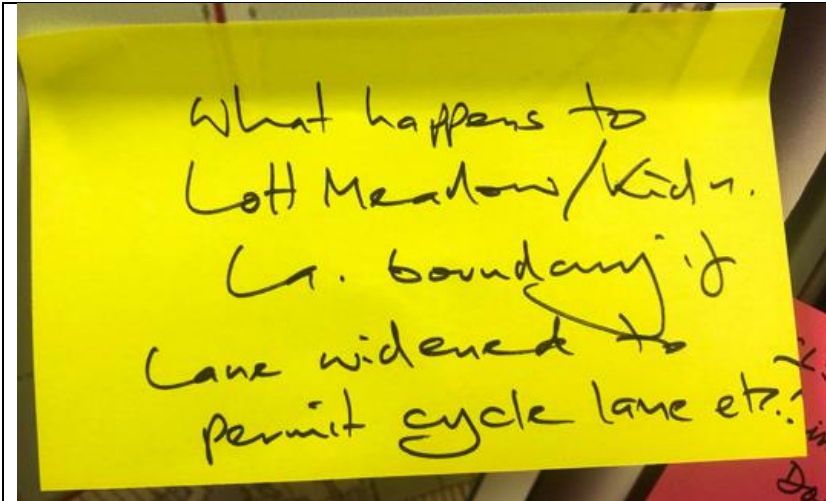 What happens to
Lott Meadow/Kidn.
La. boundary if
Lane widened to
permit cycle lane etc.?